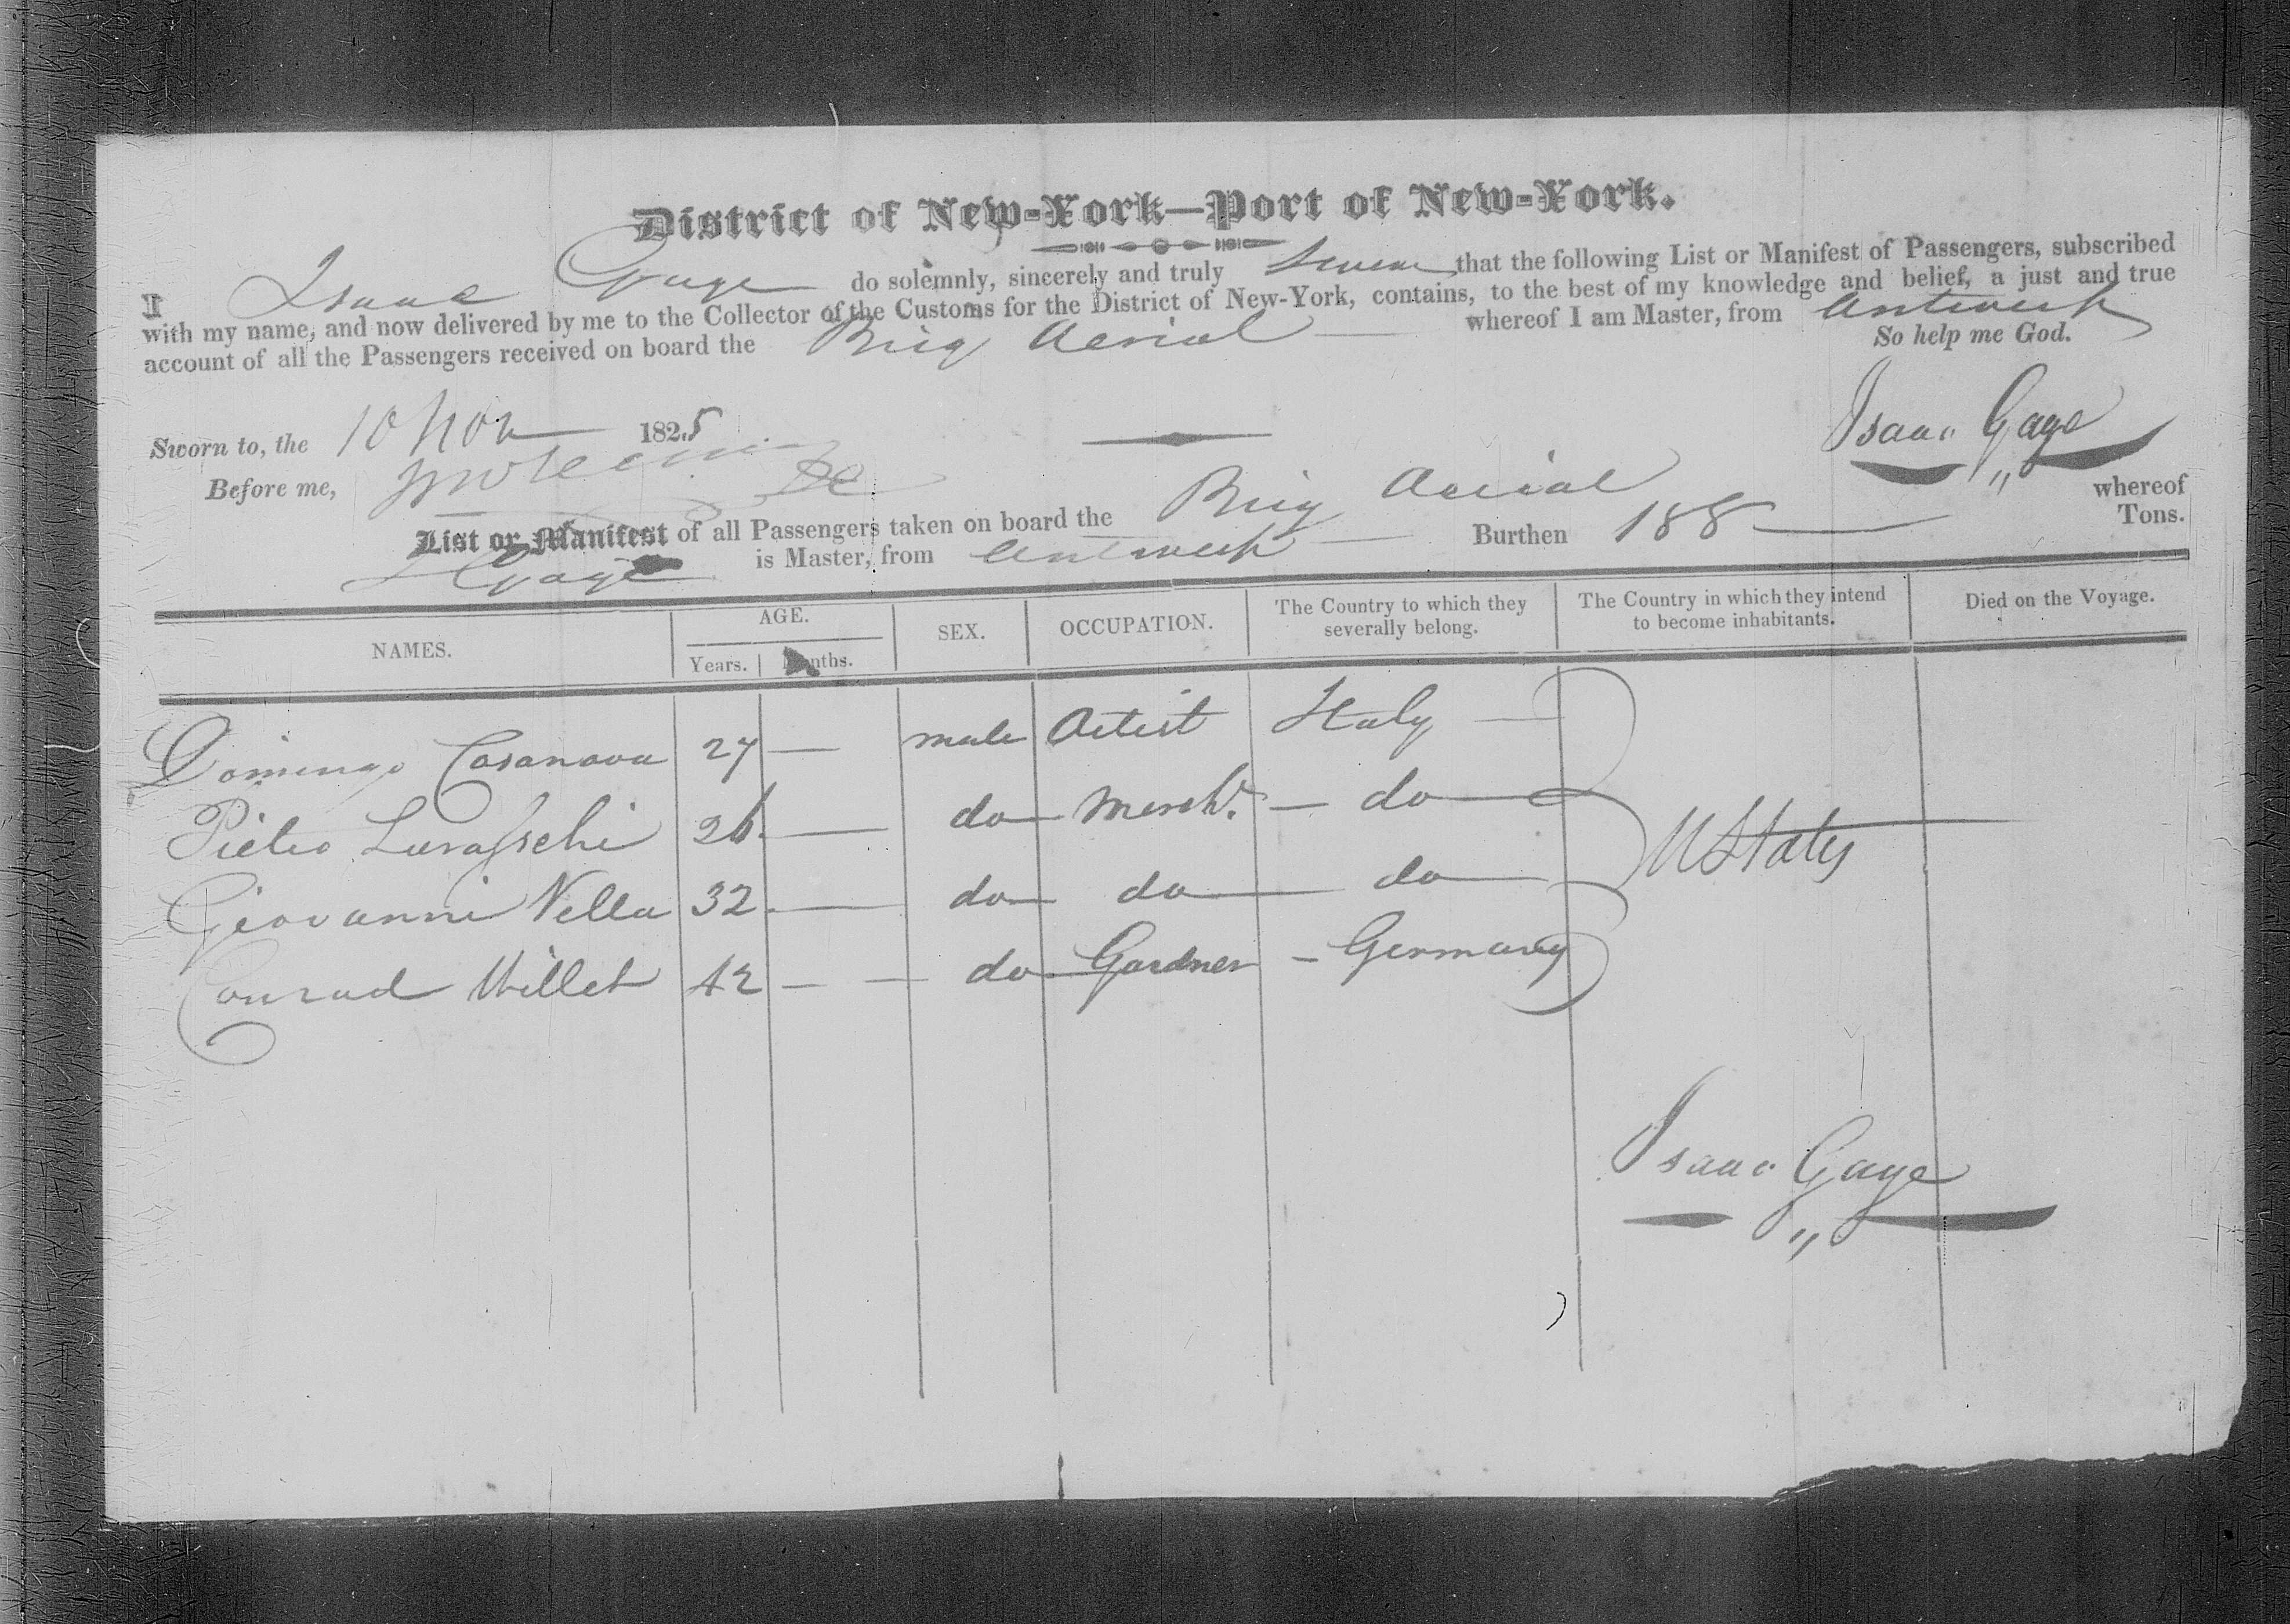 District of New-York—Port of New-York.
I Isaac Gage do solemnly, sincerely and truly Swear that the following List or Manifest of Passengers, subscribed
with my name, and now delivered by me to the Collector of the Customs for the District of New-York, contains, to the best of my knowledge and belief, a just and true
account of all the Passengers received on board the Brig Aerial whereof I am Master, from Antwerp
So help me God.
Sworn to, the 10 Nov 1825
Isaac Gage
Before me,
List or Manifest of all Passengers taken on board the Brig Aerial whereof
Gage is Master, from Antwerp Burthen 188 Tons.
NAMES. AGE. Years. Months. SEX. OCCUPATION. The Country to which they severally belong. The Country in which they intend to become inhabitants. Died on the Voyage.
Domingo Casanova 27 — male Artist Italy —
Pietro 26 — do Mercht. — do
Giovanni Vella 32 — do do do
U States
Conrad Willet 42 — — do Gardner — Germany
Isaac Gage